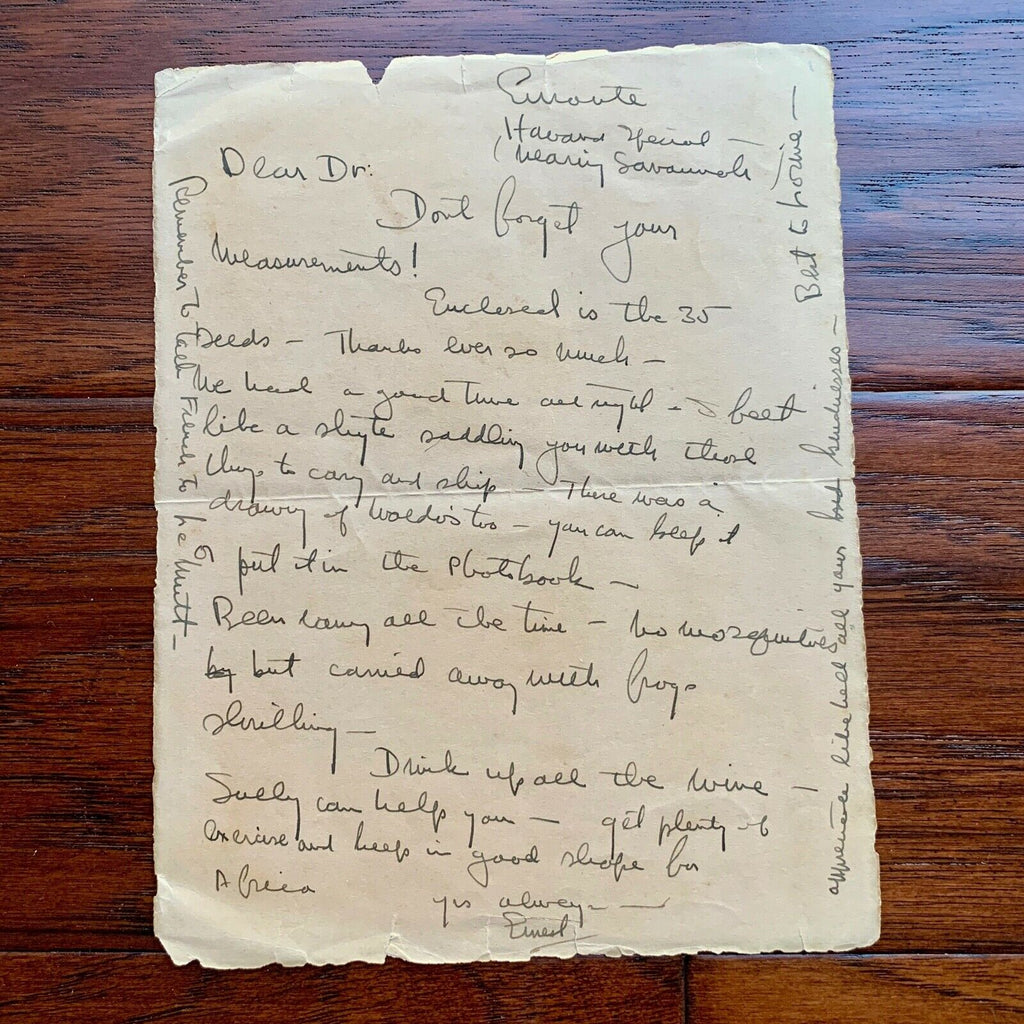 Enroute
Havana Special —
(Nearing Savannah
Dear Dr:
Dont forget your
Measurements!
Enclosed is the 35
Seeds — Thanks ever so much —
We had a good time all right — I feel
like a shyte saddling you with those
things to carry and ship — There was a
drawing of Waldo's too — you can keep it
put it in the Photobook —
Been rainy all the time — No mosquitoes
by but carried away with frogs
shrilling —
Drink up all the wine —
Sully can help you — get plenty of
exercise and keep in good shape for
Africa
yrs always —
Ernest
appreciate like hell all your kindnesses —
Best to Lorine —
Remember to teach French to the Mutt —